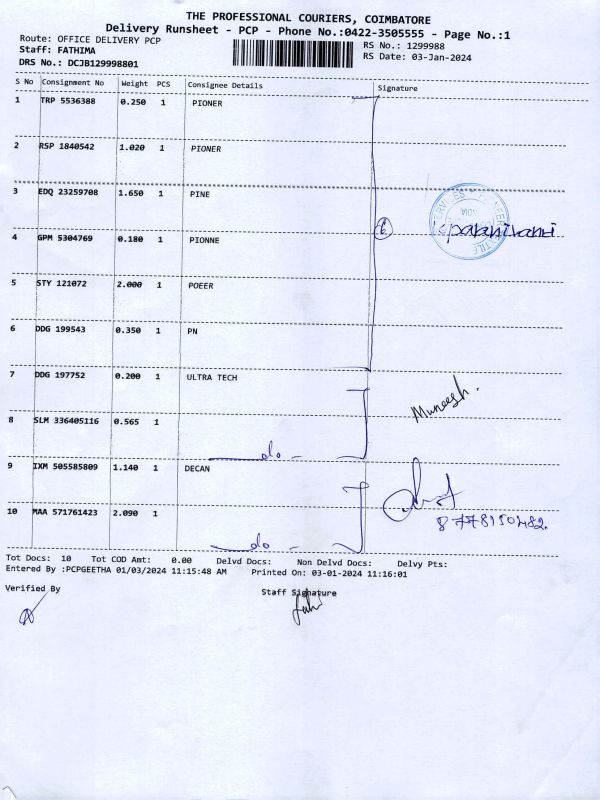 THE PROFESSIONAL COURIERS, COIMBATORE
Delivery Runsheet - PCP - Phone No.:0422-3505555 - Page No.:1
Route: OFFICE DELIVERY PCP RS No.: 1299988
Staff: FATHIMA RS Date: 03-Jan-2024
DRS No.: DCJB129998801
S No Consignment No Weight PCS Consignee Details Signature
1 TRP 5536388 0.250 1 PIONER
2 RSP 1840542 1.020 1 PIONER
3 EDQ 23259708 1.650 1 PINE
4 GPM 5304769 0.180 1 PIONNE
5 STY 121072 2.000 1 POEER
6 DDG 199543 0.350 1 PN
7 DDG 197752 0.200 1 ULTRA TECH
Muneesh.
8 SLM 336405116 0.565 1
do -
9 IXM 505585809 1.140 1 DECAN
10 MAA 571761423 2.090 1
do -
Tot Docs: 10 Tot COD Amt: 0.00 Delvd Docs: Non Delvd Docs: Delvy Pts:
Entered By :PCPGEETHA 01/03/2024 11:15:48 AM Printed On: 03-01-2024 11:16:01
Verified By Staff Signature